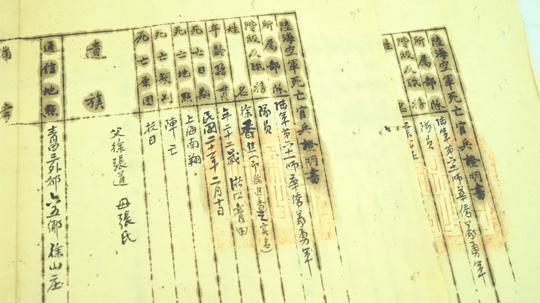 陸海空軍死亡官兵證明書
所屬部隊 陸軍第六十一師華僑義勇軍
階級及職 隊員
名
陸海空軍死亡官兵證明書
所屬部隊 陸軍第六十一師華僑義勇軍
階級及職 隊員
姓名 徐香進
年齡籍貫 年二十三歲 浙江青田
死亡日期 民國二十一年二月十日
死亡地點 上海南翔
死亡類別 陣亡
死亡原因 抗日
遺族 父徐張道 母張氏
通信地點 青田三外都 鄉 徐山庄